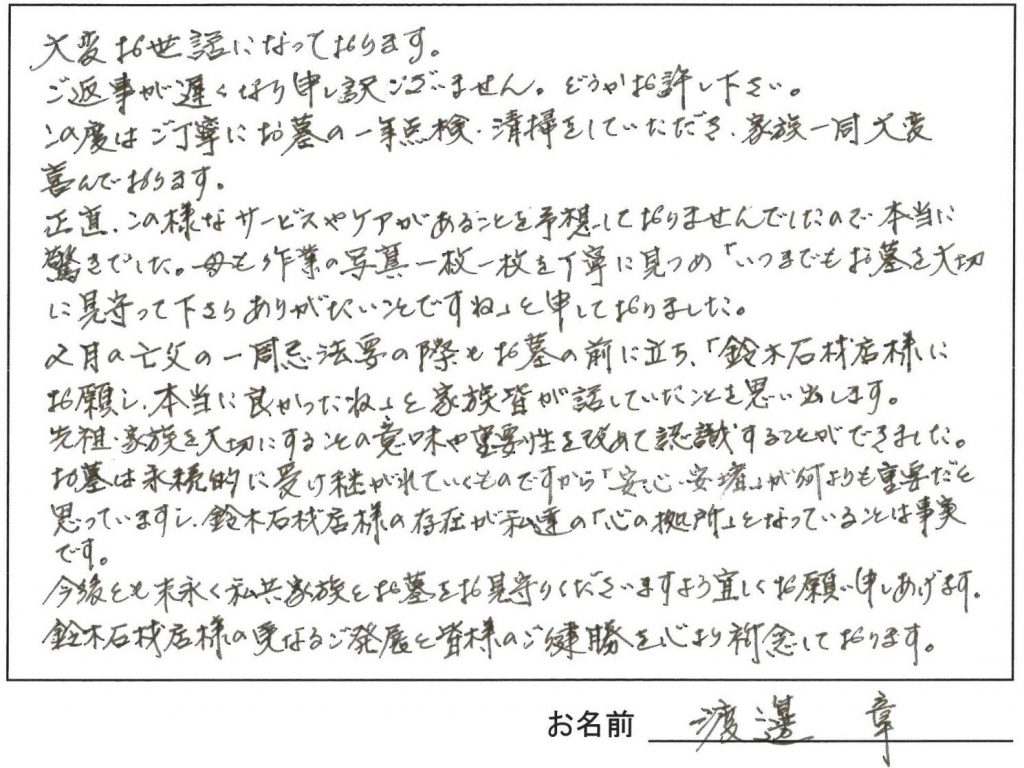 大変お世話になっております。
ご返事が遅くなり申し訳ございません。どうかお許し下さい。
この度はご丁寧にお墓の一年点検・清掃をしていただき、家族一同大変
喜んでおります。
正直、この様なサービスやケアがあることを予想しておりませんでしたので本当に
驚きでした。母も作業の写真一枚一枚を丁寧に見つめ「いつまでもお墓を大切
に見守って下さりありがたいことですね」と申しておりました。
2月の亡父の一周忌法要の際もお墓の前に立ち、「鈴木石材店様に
お願いし、本当に良かったね」と家族皆が話していたことを思い出します。
先祖・家族を大切にすることの意味や重要性を改めて認識することができました。
お墓は永続的に受け継がれていくものですから「安心・安堵」が何よりも重要だと
思っていますし、鈴木石材店様の存在が私達の「心の拠所」となっていることは事実
です。
今後とも末永く私共家族とお墓をお見守りくださいますよう宜しくお願い申しあげます。
鈴木石材店様の更なるご発展と皆様のご健勝を心より祈念しております。
お名前 渡邊 章